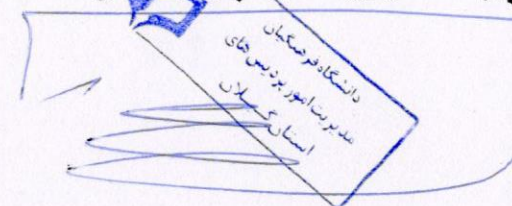 دانشگاه فرهنگیان
مدیریت امور پردیس های
استان گیلان